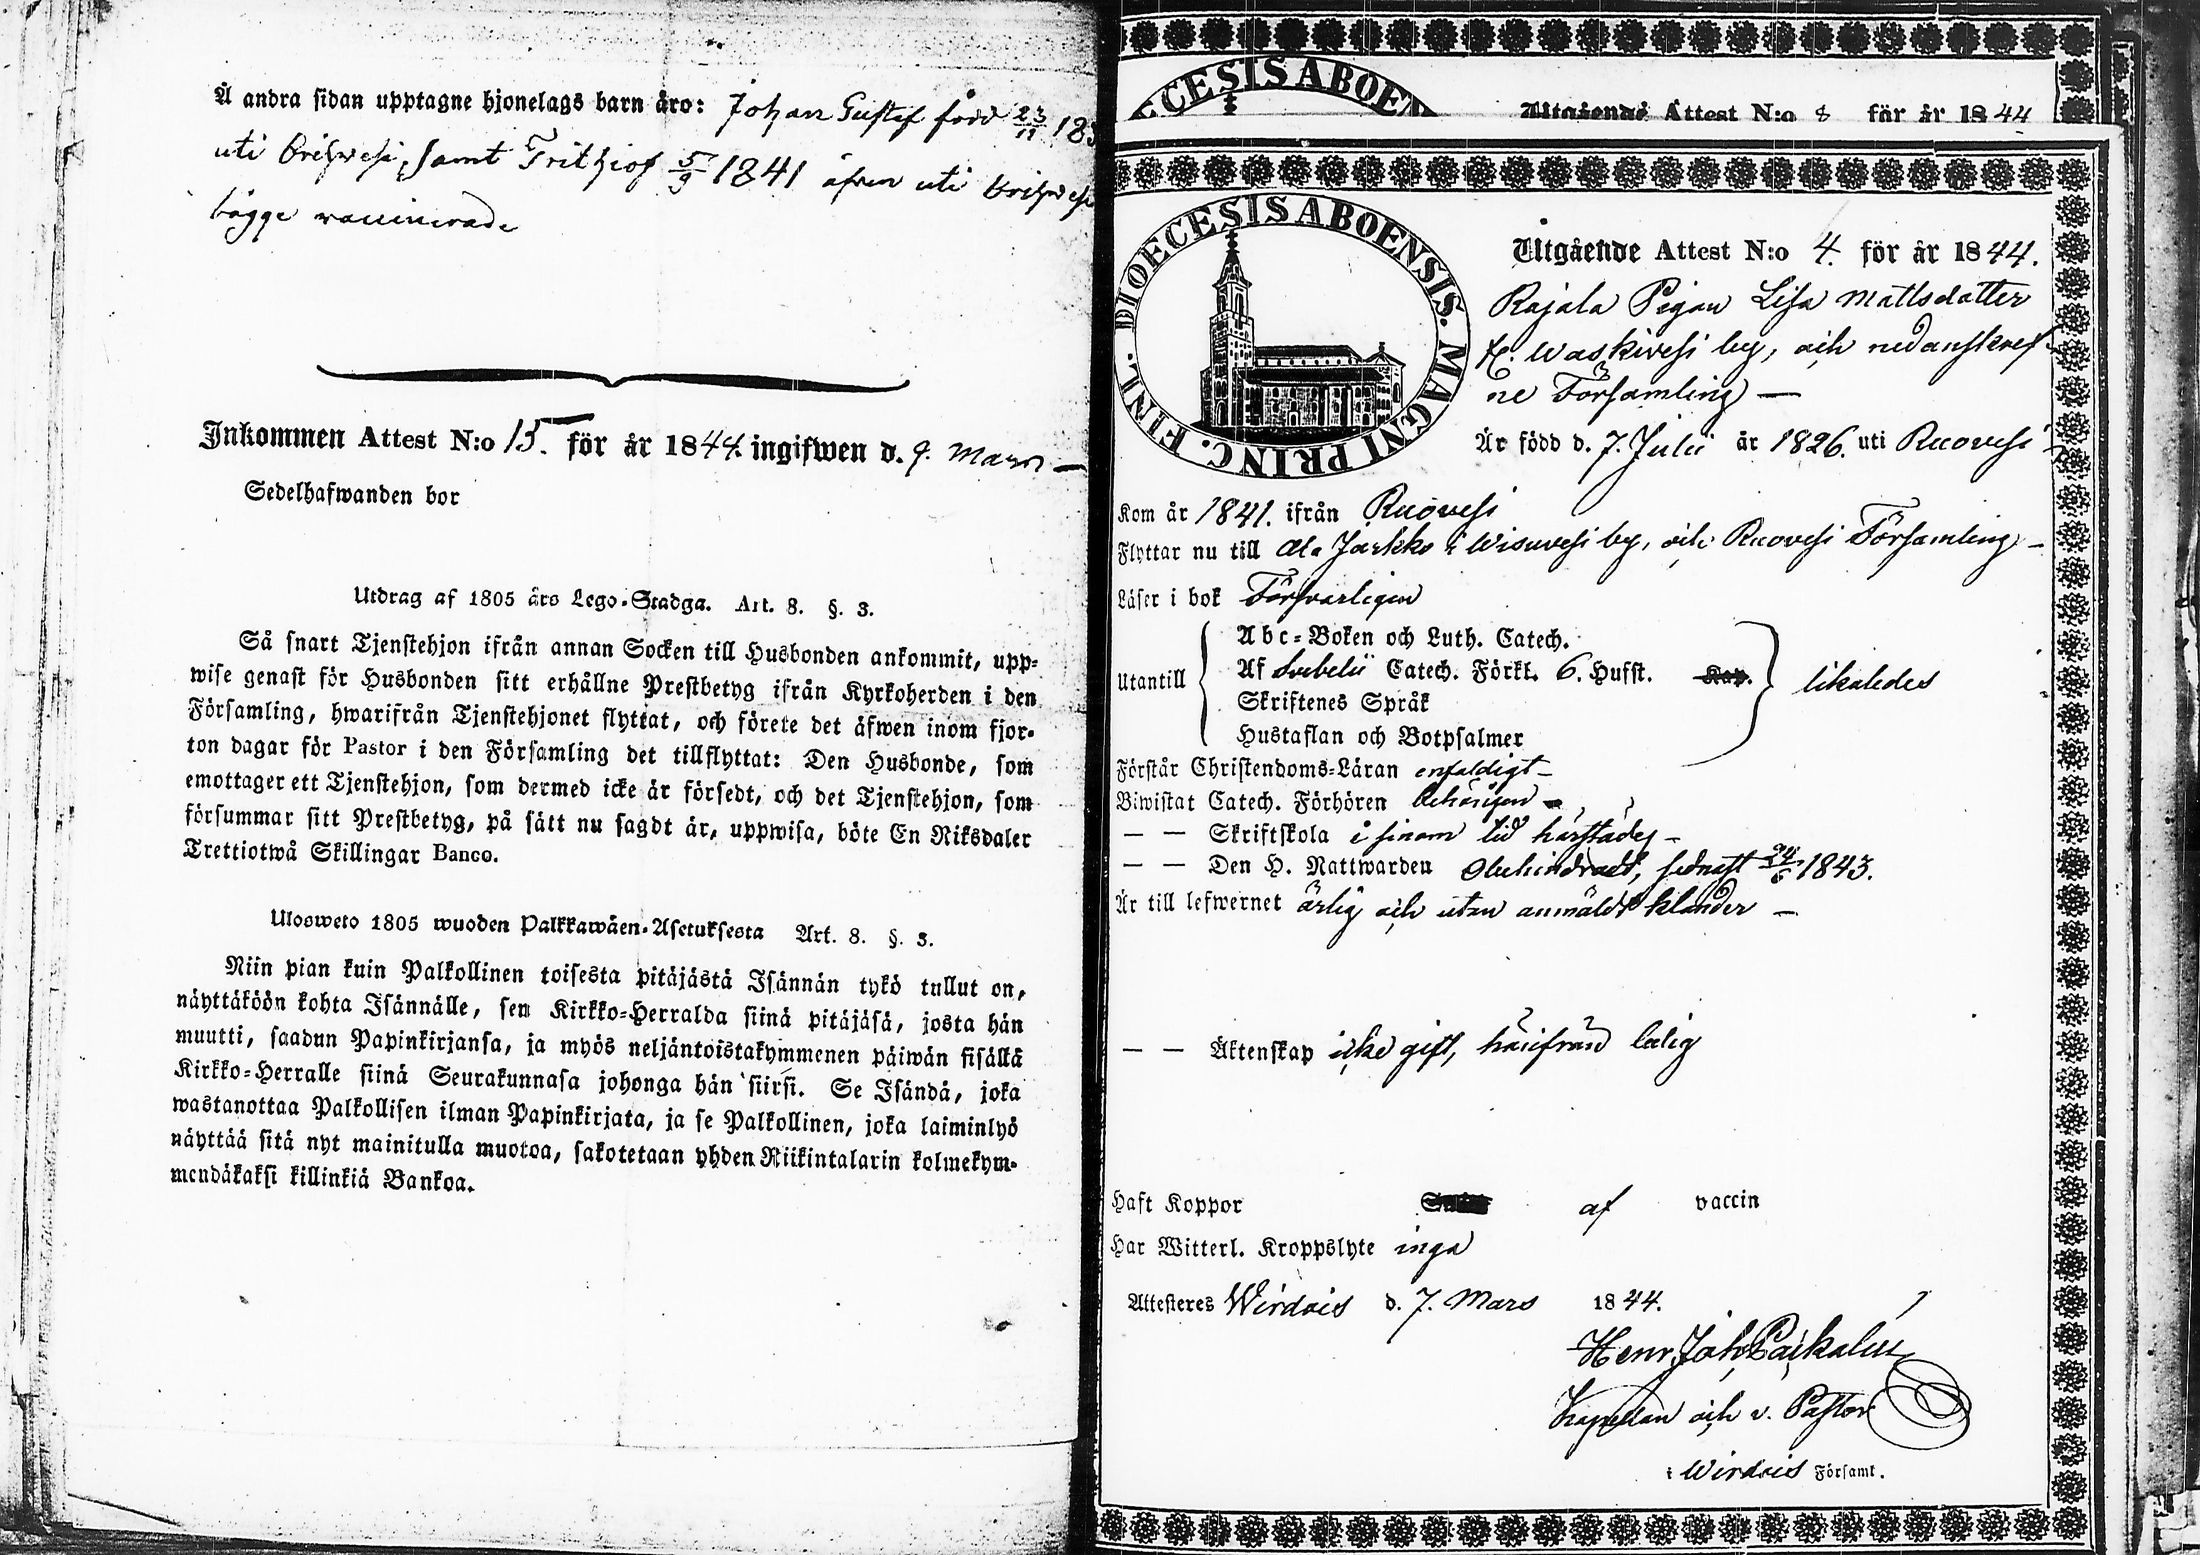 Å andra sidan upptagne hjonelags barn äro: Johan Gustaf född 23/11 183
uti Orihwesi, samt Frithiof 5/9 1841 äfven uti Orihwesi
bägge vaccinerade
Inkommen Attest N:o 15. för år 1844. ingifwen d. 9. Mars —
Sedelhafwanden bor
Utdrag af 1805 års Lego-Stadga. Art. 8. §. 3.
Så snart Tjenstehjon ifrån annan Socken till Husbonden ankommit, upp-
wise genast för Husbonden sitt erhållne Prestbetyg ifrån Kyrkoherden i den
Församling, hwarifrån Tjenstehjonet flyttat, och förete det äfwen inom fjor-
ton dagar för Pastor i den Församling det tillflyttat: Den Husbonde, som
emottager ett Tjenstehjon, som dermed icke är försedt, och det Tjenstehjon, som
försummar sitt Prestbetyg, på sätt nu sagdt är, uppwisa, böte En Riksdaler
Trettiotwå Skillingar Banco.
Ulosweto 1805 wuoden Palkkawäen-Asetuksesta Art. 8. §. 3.
Niin pian kuin Palkollinen toisesta pitäjästä Isännän tykö tullut on,
näyttäköön kohta Isännälle, sen Kirkko-Herralda siinä pitäjäsä, josta hän
muutti, saadun Papinkirjansa, ja myös neljäntoistakymmenen päiwän sisällä
Kirkko-Herralle siinä Seurakunnasa johonga hän siirsi. Se Isändä, joka
wastanottaa Palkollisen ilman Papinkirjata, ja se Palkollinen, joka laiminlyö
näyttää sitä nyt mainitulla muotoa, sakotetaan yhden Riikintalarin kolmekym-
mendäkaksi killinkiä Bankoa.
ECESIS ABOEN
Utgående Attest N:o 8 för år 1844
DIOECESIS ABOENSIS. MAGNI PRINC. FINL.
Utgående Attest N:o 4. för år 1844.
Rajala Pigan Lisa Mattsdotter
fr. Waskivesi by, och nedanskref-
ne Församling —
Är född d. 7. Julii år 1826. uti Ruovesi
Kom år 1841. ifrån Ruovesi
Flyttar nu till Ala Jäskko i Wisuvesi by, och Ruovesi Församling —
Läser i bok Försvarligen
Abc-Boken och Luth. Catech.
Utantill Af Svebelii Catech. Förkl. 6. Hufst. Kap. likaledes
Skriftenes Språk
Hustaflan och Botpsalmer
Förstår Christendoms-Läran enfaldigt —
Biwistat Catech. Förhören behörigen —
— — Skriftskola i sinom tid härstädes —
— — Den H. Nattwarden obehindradt, sednast 24/6 1843.
Är till lefwernet ärlig och utan anmäldt klander —
— — Äktenskap icke gift, härifrån ledig
Haft Koppor af vaccin
Har Witterl. Kroppslyte inga
Attesteres Wirdois d. 7. Mars 1844.
Henr. Joh. Paskalin
Kapellan och v. Pastor
i Wirdois Församl.